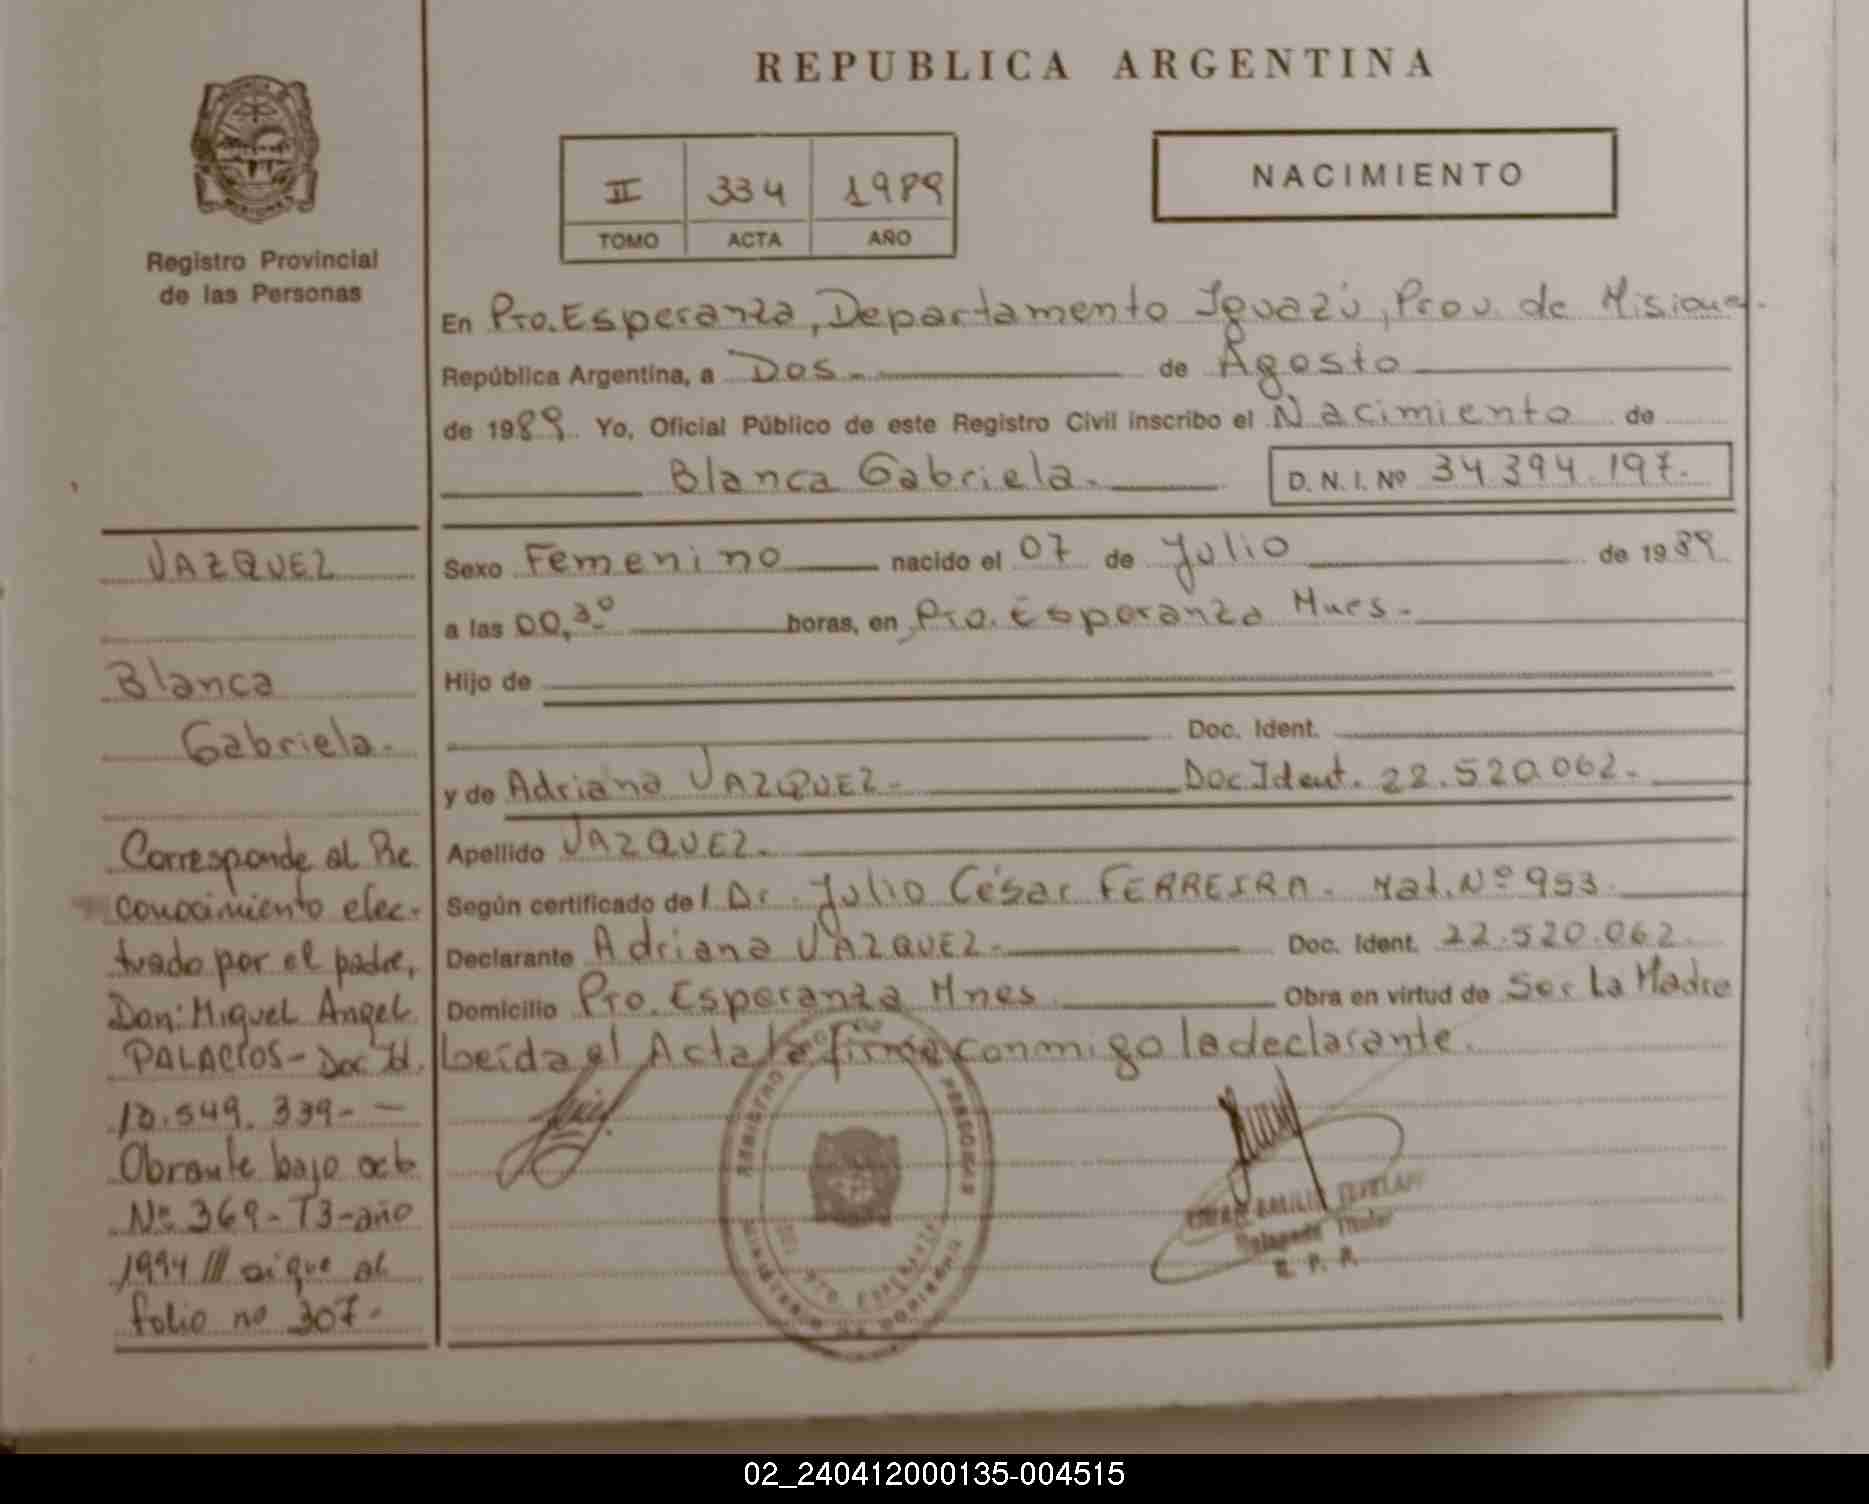 REPUBLICA ARGENTINA
Registro Provincial
de las Personas
II 334 1989
TOMO ACTA AÑO
NACIMIENTO
En Pto. Esperanza, Departamento Iguazú, Prov. de Misiones.
República Argentina, a Dos.- de Agosto
de 1989. Yo, Oficial Público de este Registro Civil inscribo el Nacimiento de
Blanca Gabriela.- D. N. I. Nº 34.394.197.-
VAZQUEZ
Blanca
Gabriela.-
Corresponde al Re
conocimiento efec-
tuado por el padre,
Don: Miguel Angel
PALACIOS - Doc Id.
549.339 - -
Obrante bajo acta
Nº 369 - T3 - año
1994 /// sigue al
folio nº 307 -
Sexo Femenino nacido el 07 de Julio de 1989
a las 00,30 horas, en Pto. Esperanza Mnes.-
Hijo de
Doc. Ident.
y de Adriana VAZQUEZ.- Doc Ident. 22.520.062.-
Apellido VAZQUEZ.-
Según certificado del Dr. Julio César FERREIRA. Mat. Nº 953.
Declarante Adriana VAZQUEZ.- Doc. Ident. 22.520.062.
Domicilio Pto. Esperanza Mnes Obra en virtud de Ser La Madre
Leída el Acta la firma conmigo la declarante.
REGISTRO DE LAS PERSONAS
PTO. ESPERANZA
MINISTERIO DE GOBIERNO
BASILIO
Delegado Titular
R. P. P.
02_240412000135-004515